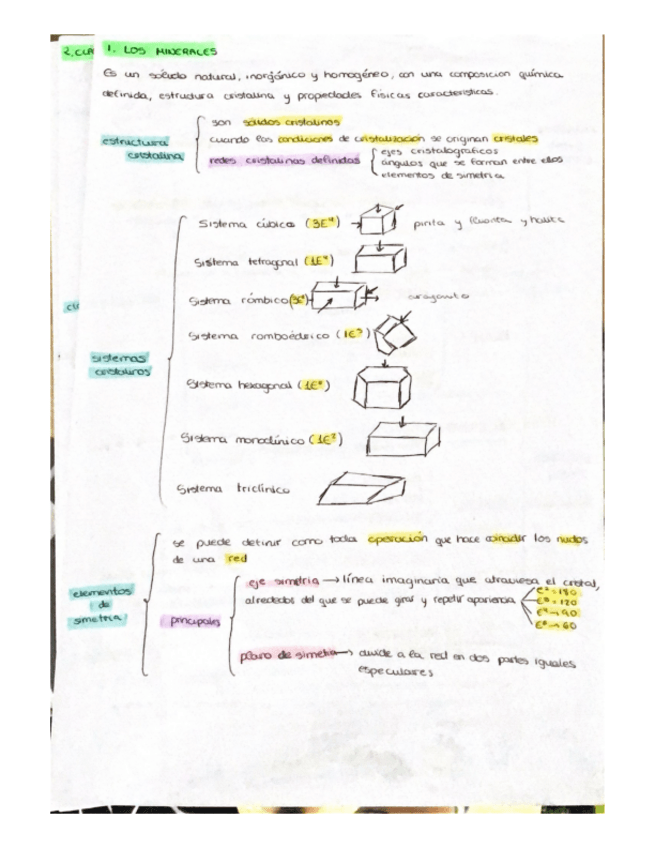 2. CLA
1. LOS MINERALES
Es un sólido natural, inorgánico y homogéneo, con una composición química
definida, estructura cristalina y propiedades físicas características.
estructura
cristalina
son sólidos cristalinos
cuando las condiciones de cristalización se originan cristales
redes cristalinas definidas
ejes cristalográficos
ángulos que se forman entre ellos
elementos de simetría
sistemas
cristalinos
Sistema cúbico (3E⁴)
pirita y fluorita y halita
Sistema tetragonal (1E⁴)
Sistema rómbico
aragonito
Sistema romboédrico (1E³)
Sistema hexagonal (1E⁶)
Sistema monoclínico (1E²)
Sistema triclínico
elementos
de
simetría
se puede definir como toda operación que hace coincidir los nudos
de una red
principales
eje simetría → línea imaginaria que atraviesa el cristal,
alrededor del que se puede girar y repetir apariencia
E² = 180
E³ = 120
E⁴ → 90
E⁶ → 60
plano de simetría → divide a la red en dos partes iguales
especulares